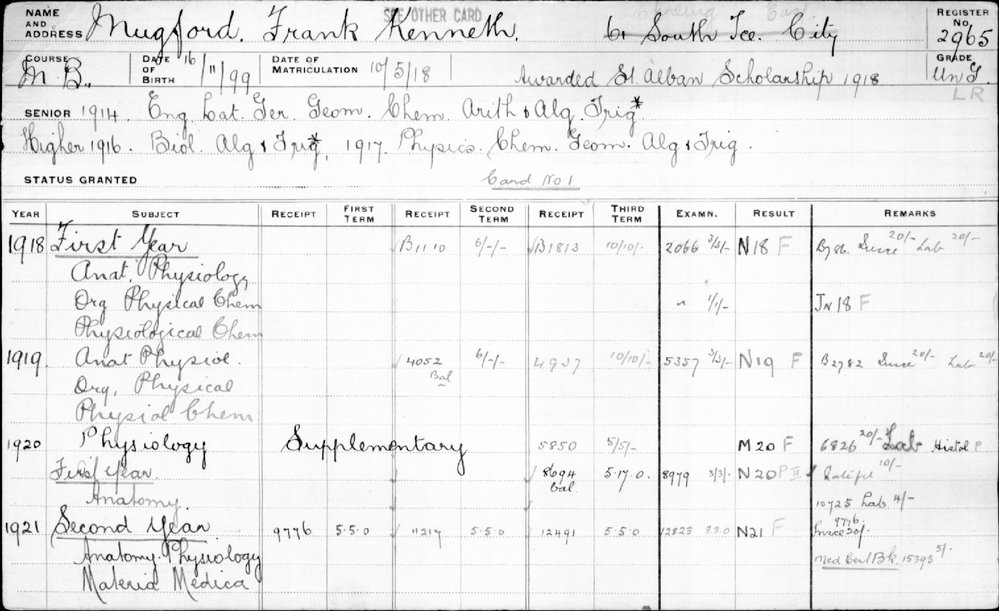 SEE OTHER CARD
NAME AND ADDRESS Mugford. Frank Kenneth. 61 South Tce. City REGISTER No. 2965
COURSE M.B., DATE OF BIRTH 16/11/99 DATE OF MATRICULATION 10/5/18 Awarded St Alban Scholarship 1918 GRADE
LR
SENIOR 1914. Eng Lat. Ger. Geom. Chem. Arith & Alg. Trig*
Higher 1916. Biol. Alg & Trig*, 1917. Physics. Chem. Geom. Alg & Trig.
STATUS GRANTED Card No 1
YEAR SUBJECT RECEIPT FIRST TERM RECEIPT SECOND TERM RECEIPT THIRD TERM EXAMN. RESULT REMARKS
1918 First Year B1110 6/-/- B1813 10/10/- 2066 3/3/- N18 F B786. 20/- Lab 20/-
Anat. Physiology
Org Physical Chem " 1/1/- JN 18 F
Physiological Chem
1919. Anat Physiol. 4052 6/-/- 4937 10/10/- 5357 3/3/- N19 F B2782 20/- Lab 20/-
Bal
Org, Physical
Physiol Chem
1920 Physiology Supplementary 5850 5/5/- M20 F 6826 20/- Lab Histol P.
First Year 8694 5.17.0 8979 3/3/- N20 P II 10/-
Bal.
Anatomy. 10725 Lab 4/-
1921 Second Year 9776 5.5.0 11217 5.5.0 12491 5.5.0 12823 3.3.0 N21 F 9776 20/-
Anatomy. Physiology Med Cert Bk. 15393 5/-
Materia Medica